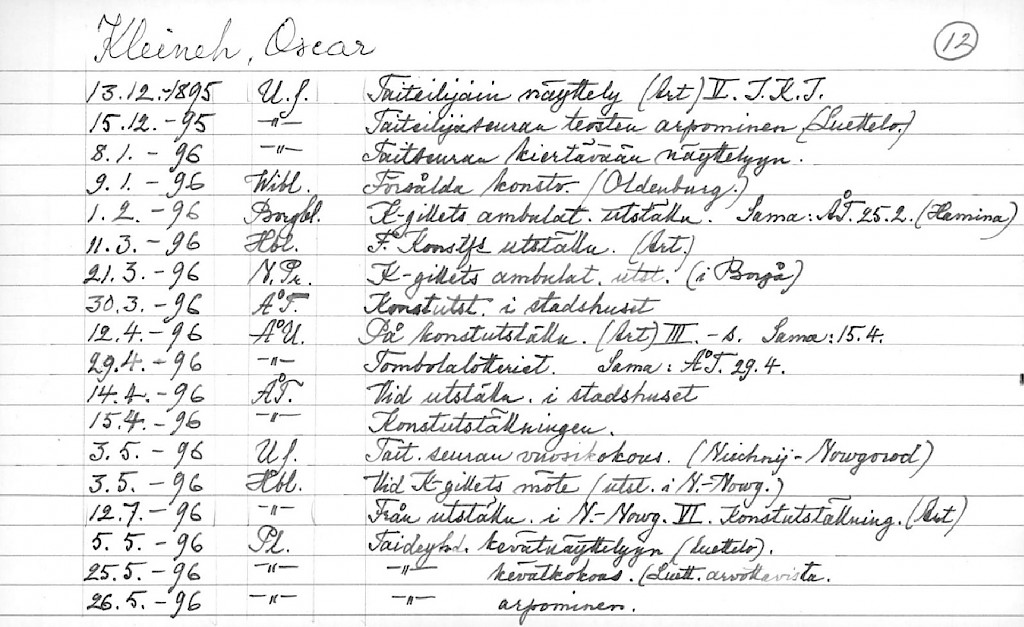 Kleineh, Oscar 12
13.12.-1895 U.S. Taiteilijain näyttely (Art) V. J.K.J.
15.12.-95 -"- Taiteilijaseuran teosten arpominen (Luettelo.)
8.1.-96 -"- Taitseuran kiertävään näyttelyyn.
9.1.-96 Wibl. Försålda konstv. (Oldenburg.)
1.2.-96 Borgbl. K-gillets ambulat. utställn. Sama: ÅT. 25.2. (Hamina)
11.3.-96 Hbl. F. Konstfs utställn. (Art.)
21.3.-96 N.Pr. K-gillets ambulat. utst. (i Borgå)
30.3.-96 ÅT. Konstutst. i stadshuset
12.4.-96 ÅU. På konstutställn. (Art) III. -s. Sama: 15.4.
29.4.-96 -"- Tombolalotteriet. Sama: ÅT. 29.4.
14.4.-96 ÅT. Vid utställn. i stadshuset
15.4.-96 -"- Konstutställningen.
3.5.-96 U.S. Tait. seuran vuosikokous. (Nischnij-Nowgorod)
3.5.-96 Hbl. Vid K-gillets möte (utst. i N.-Nowg.)
12.7.-96 -"- Från utställn. i N.-Nowg. VI. Konstutställning. (Art)
5.5.-96 Pl. Taideyhd. kevätnäyttelyyn (Luettelo).
25.5.-96 -"- -"- kevätkokous. (Luett. arvottavista.
26.5.-96 -"- -"- arpominen.